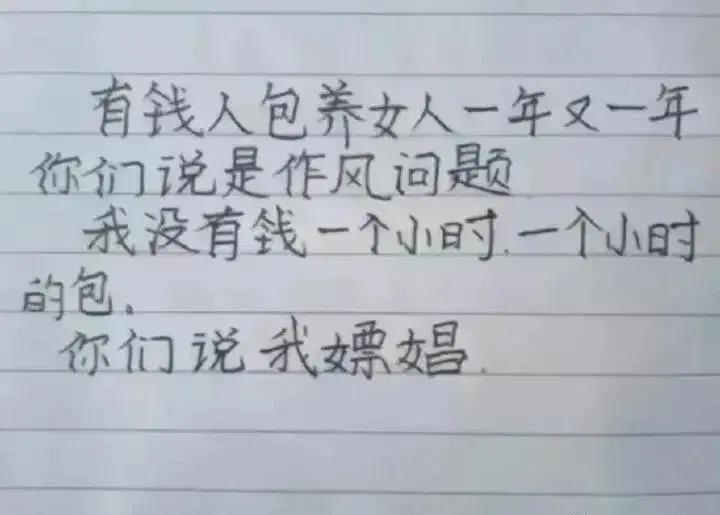 有钱人包养女人一年又一年
你们说是作风问题
我没有钱一个小时.一个小时
的包.
你们说我嫖娼.